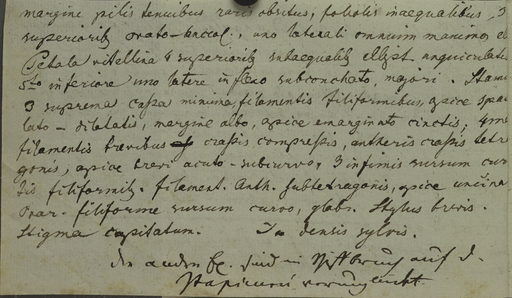 margine pilis tenuibus raris obsitus, foliolis inaequalibus, 3
superiorib ovato-lanceol., uno laterali omnium maximo, e
Petala vitellina 4 superiorib subaequalib ellipt. unguiculatis
5to inferiore uno latere inflexo subconchato, majori. Stami
3 suprema cassa minima, filamentis filiformibus, apice spa
lato-dilatatis, margine albo, apice emarginato cinctis,
filamentis brevibus crassis compressis, antheris crassis tetr
gonis, apice brevi acuto-subcurvo, 3 infimis sursum cur
filiformib. filament. Anth. subtetragonis, apice uncina
Ovar. filiforme sursum curvo, glabr. Stylus brevis.
Stigma capitatum. In densis sylvis.
auf d.